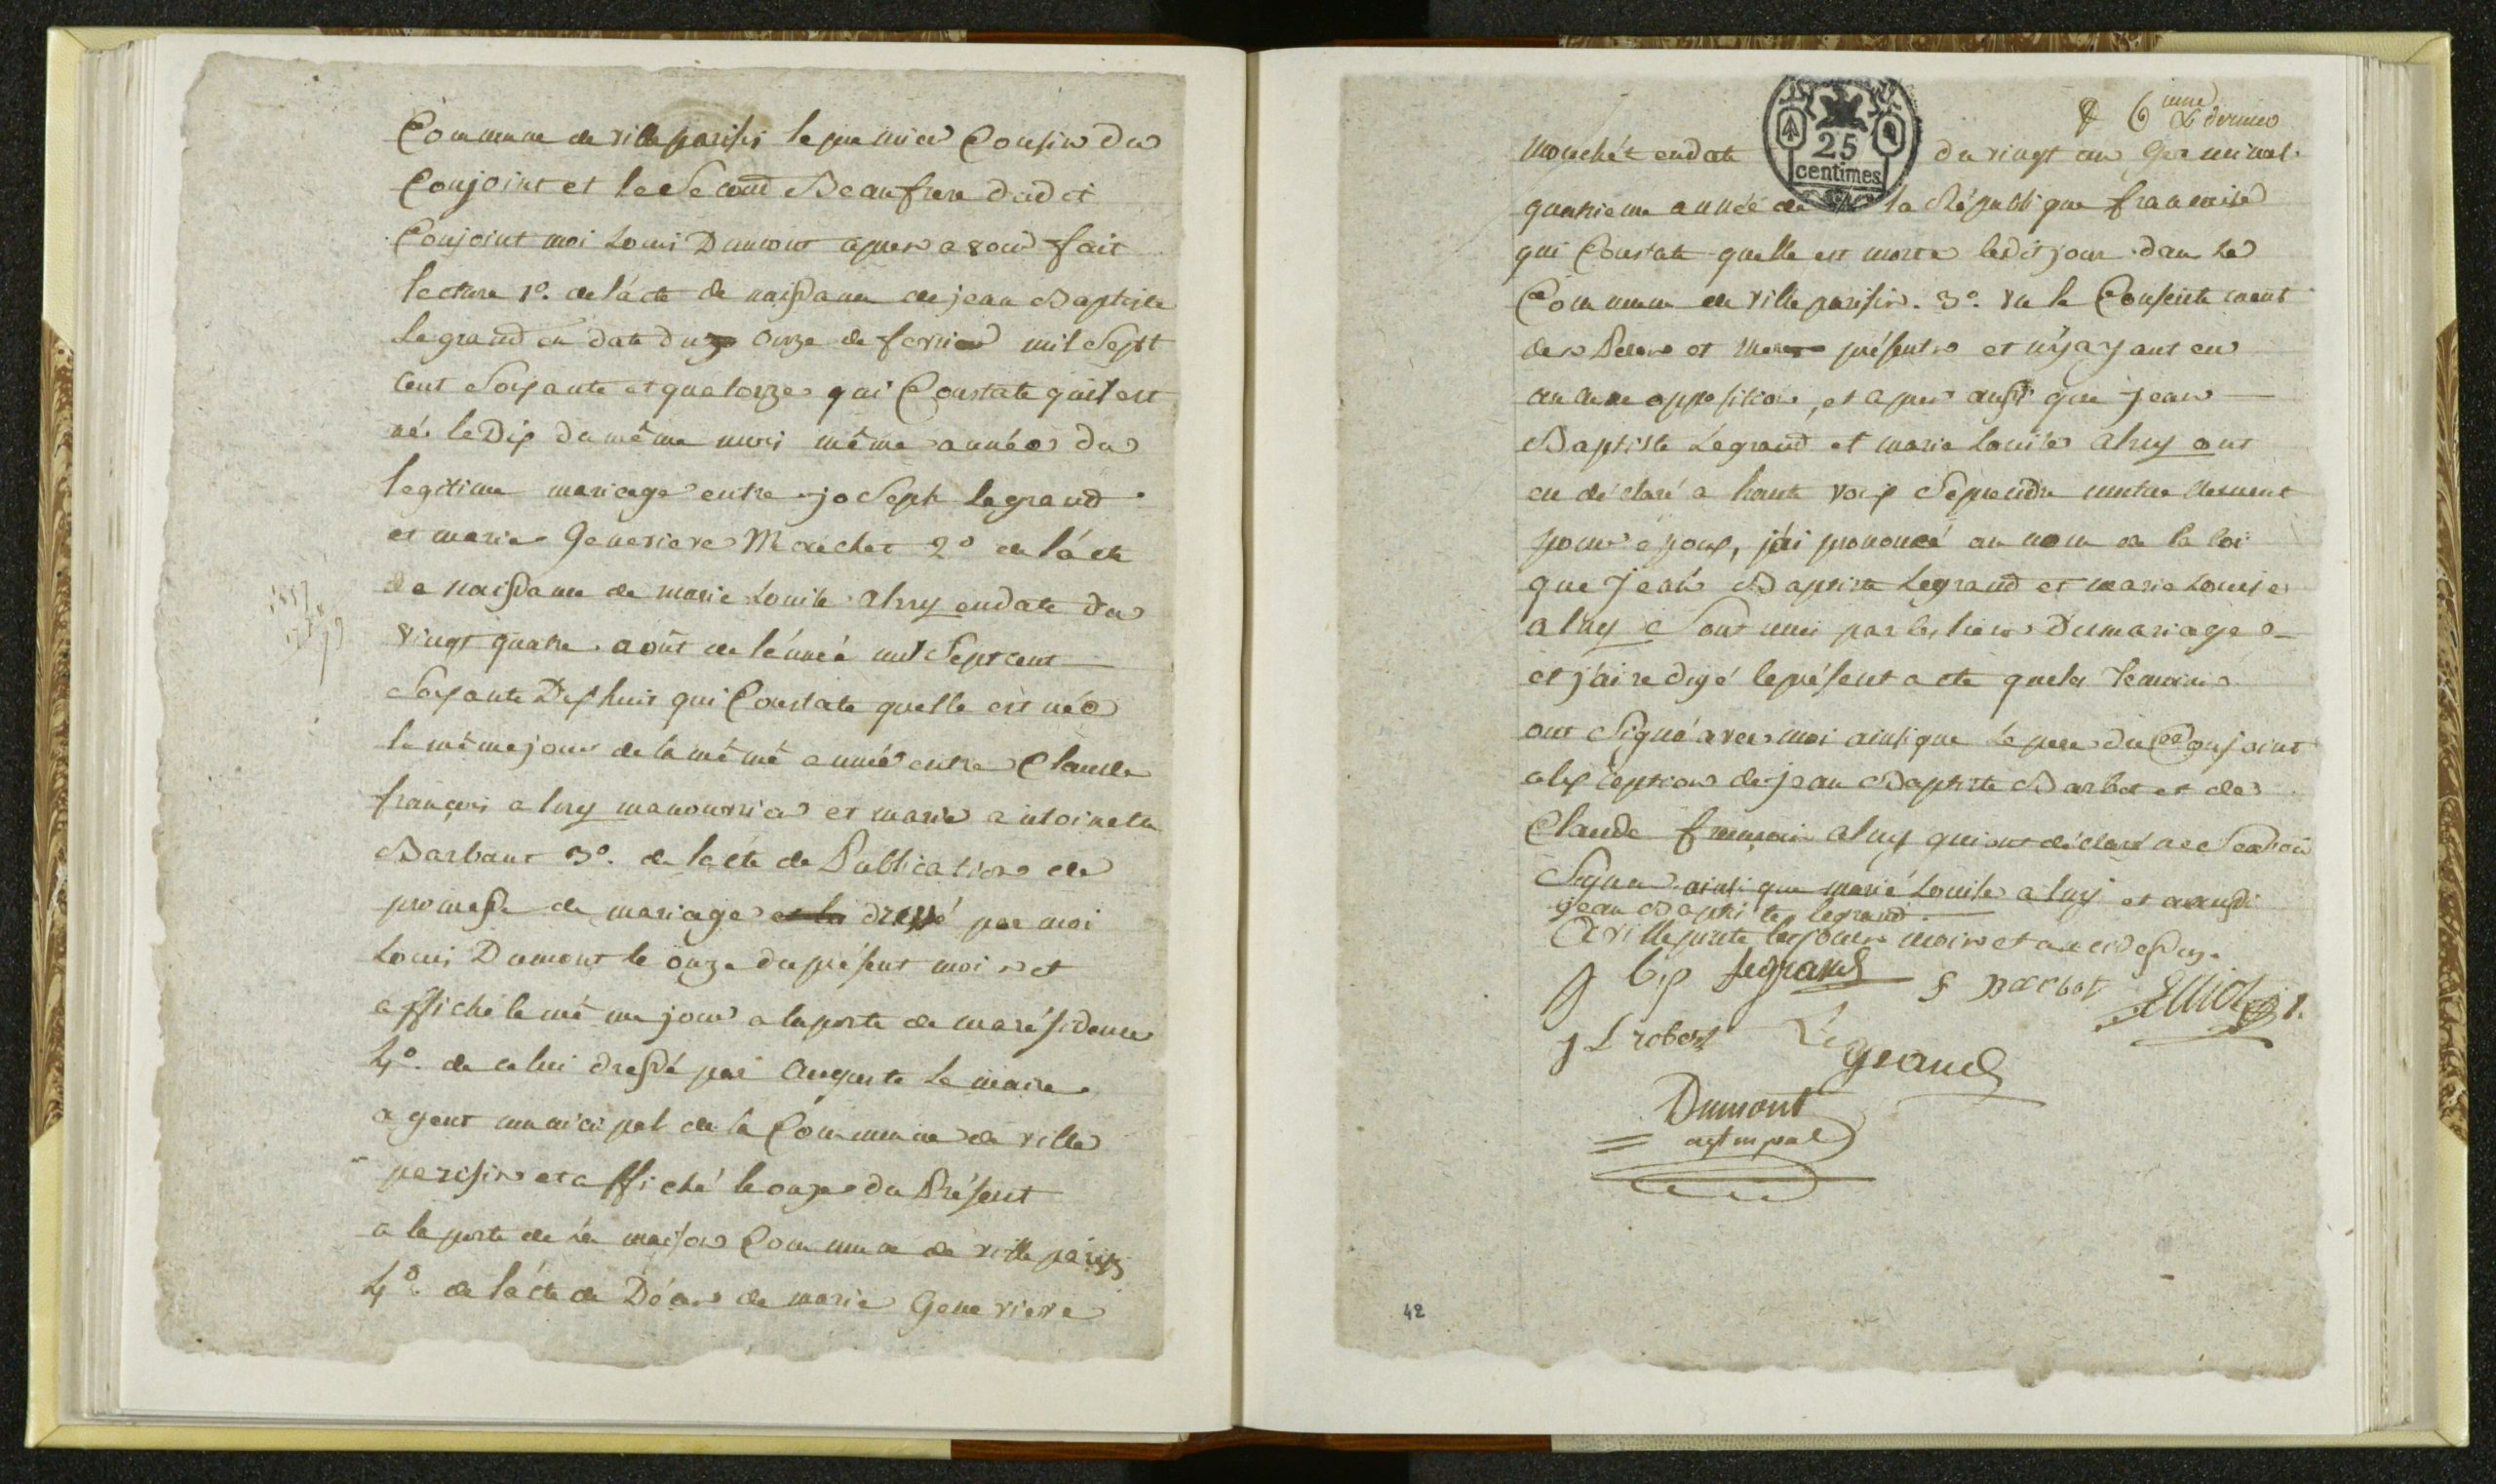 Commune de villeparisis le premier Cousin du
Conjoint et le Second Beaufrere dudit
Conjoint moi Louis Dumont apres avoir fait
lecture 1º. de l'acte de naissance de jean Baptiste
Legrand en date du onze de fevrier mil Sept
cent Soixante et quatorze qui Constate quil est
né le Dix du même mois même année du
legitime mariage entre joseph Legrand
et marie Genevieve Mouchet 2º de l'acte
de naissance de marie Louise alruy en date du
vingt quatre août de l'année mil Sept cent
Soixante Dix huit qui Constate quelle est née
le même jour de la même année entre Claude
françois alruy manouvrier et marie antoinette
Barbant 3º. de l'acte de Publication de
promesse de mariage et la dressé par moi
Louis Dumont le onze du présent mois et
affiché le même jour a la porte de ma résidence
4º. de celui dressé par auguste Le maire
agent municipal de la Commune de ville
parisis et affiché le onze du Présent
a la porte de la maison Commune de villeparisis
4º. de l'acte de Décès de marie Genevieve
6 eme & dernier
mouchét en date du vingt un Germinal
25
centimes
quatrieme année de la République francaise
qui Constate quelle est morte le dit jour dans la
Commune de villeparisis. 3º. vu le Consentement
des Peres et Meres présents et n'y ayant eu
aucune opposition, et apres aussi que jean
Baptiste Legrand et marie Louise alruy ont
eu déclaré a haute voix Se prendre mutuellement
pour epoux, j'ai prononcé au nom de la loi
que jean Baptiste Legrand et marie Louise
alruy Sont unis par les liens du mariage
et j'ai redigé le présent acte que les temoins
ont Signé avec moi ainsi que le pere du Conjoint
a l'exception de jean Baptiste Barbot et de
Claude françois alruy qui ont déclaré ne Savoir
Signer ainsi que marie Louise alruy et aussi
jean Baptiste Legrand.
A villeparisis les jour mois et an ci dessus.
j b legrand f Barbot
j L robert Le grand
Dumont
agt mpal
42